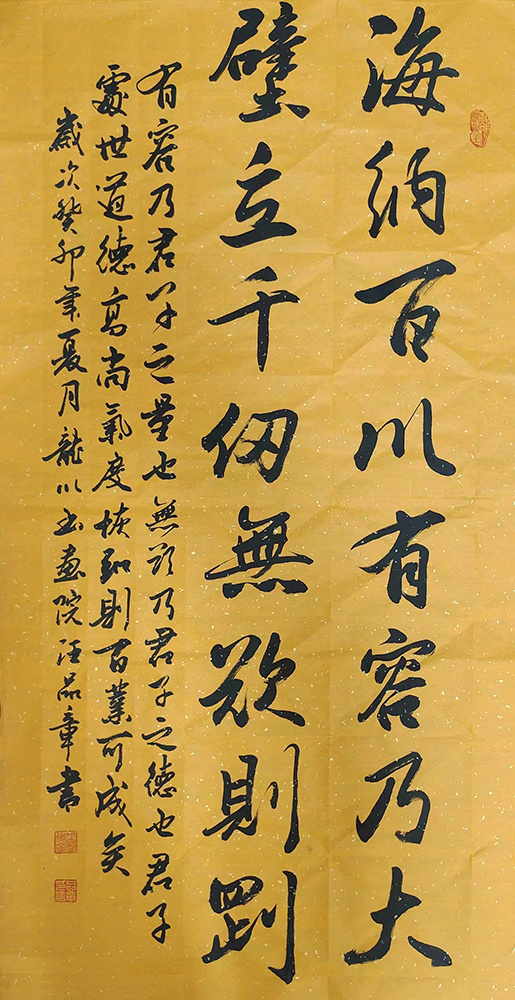 海納百川有容乃大
壁立千仞無欲則剛
有容乃君子之量也無欲乃君子之德也君子
處世道德高尚氣度恢弘則百業可成矣
歲次癸卯年夏月龍川書畫院汪品章書